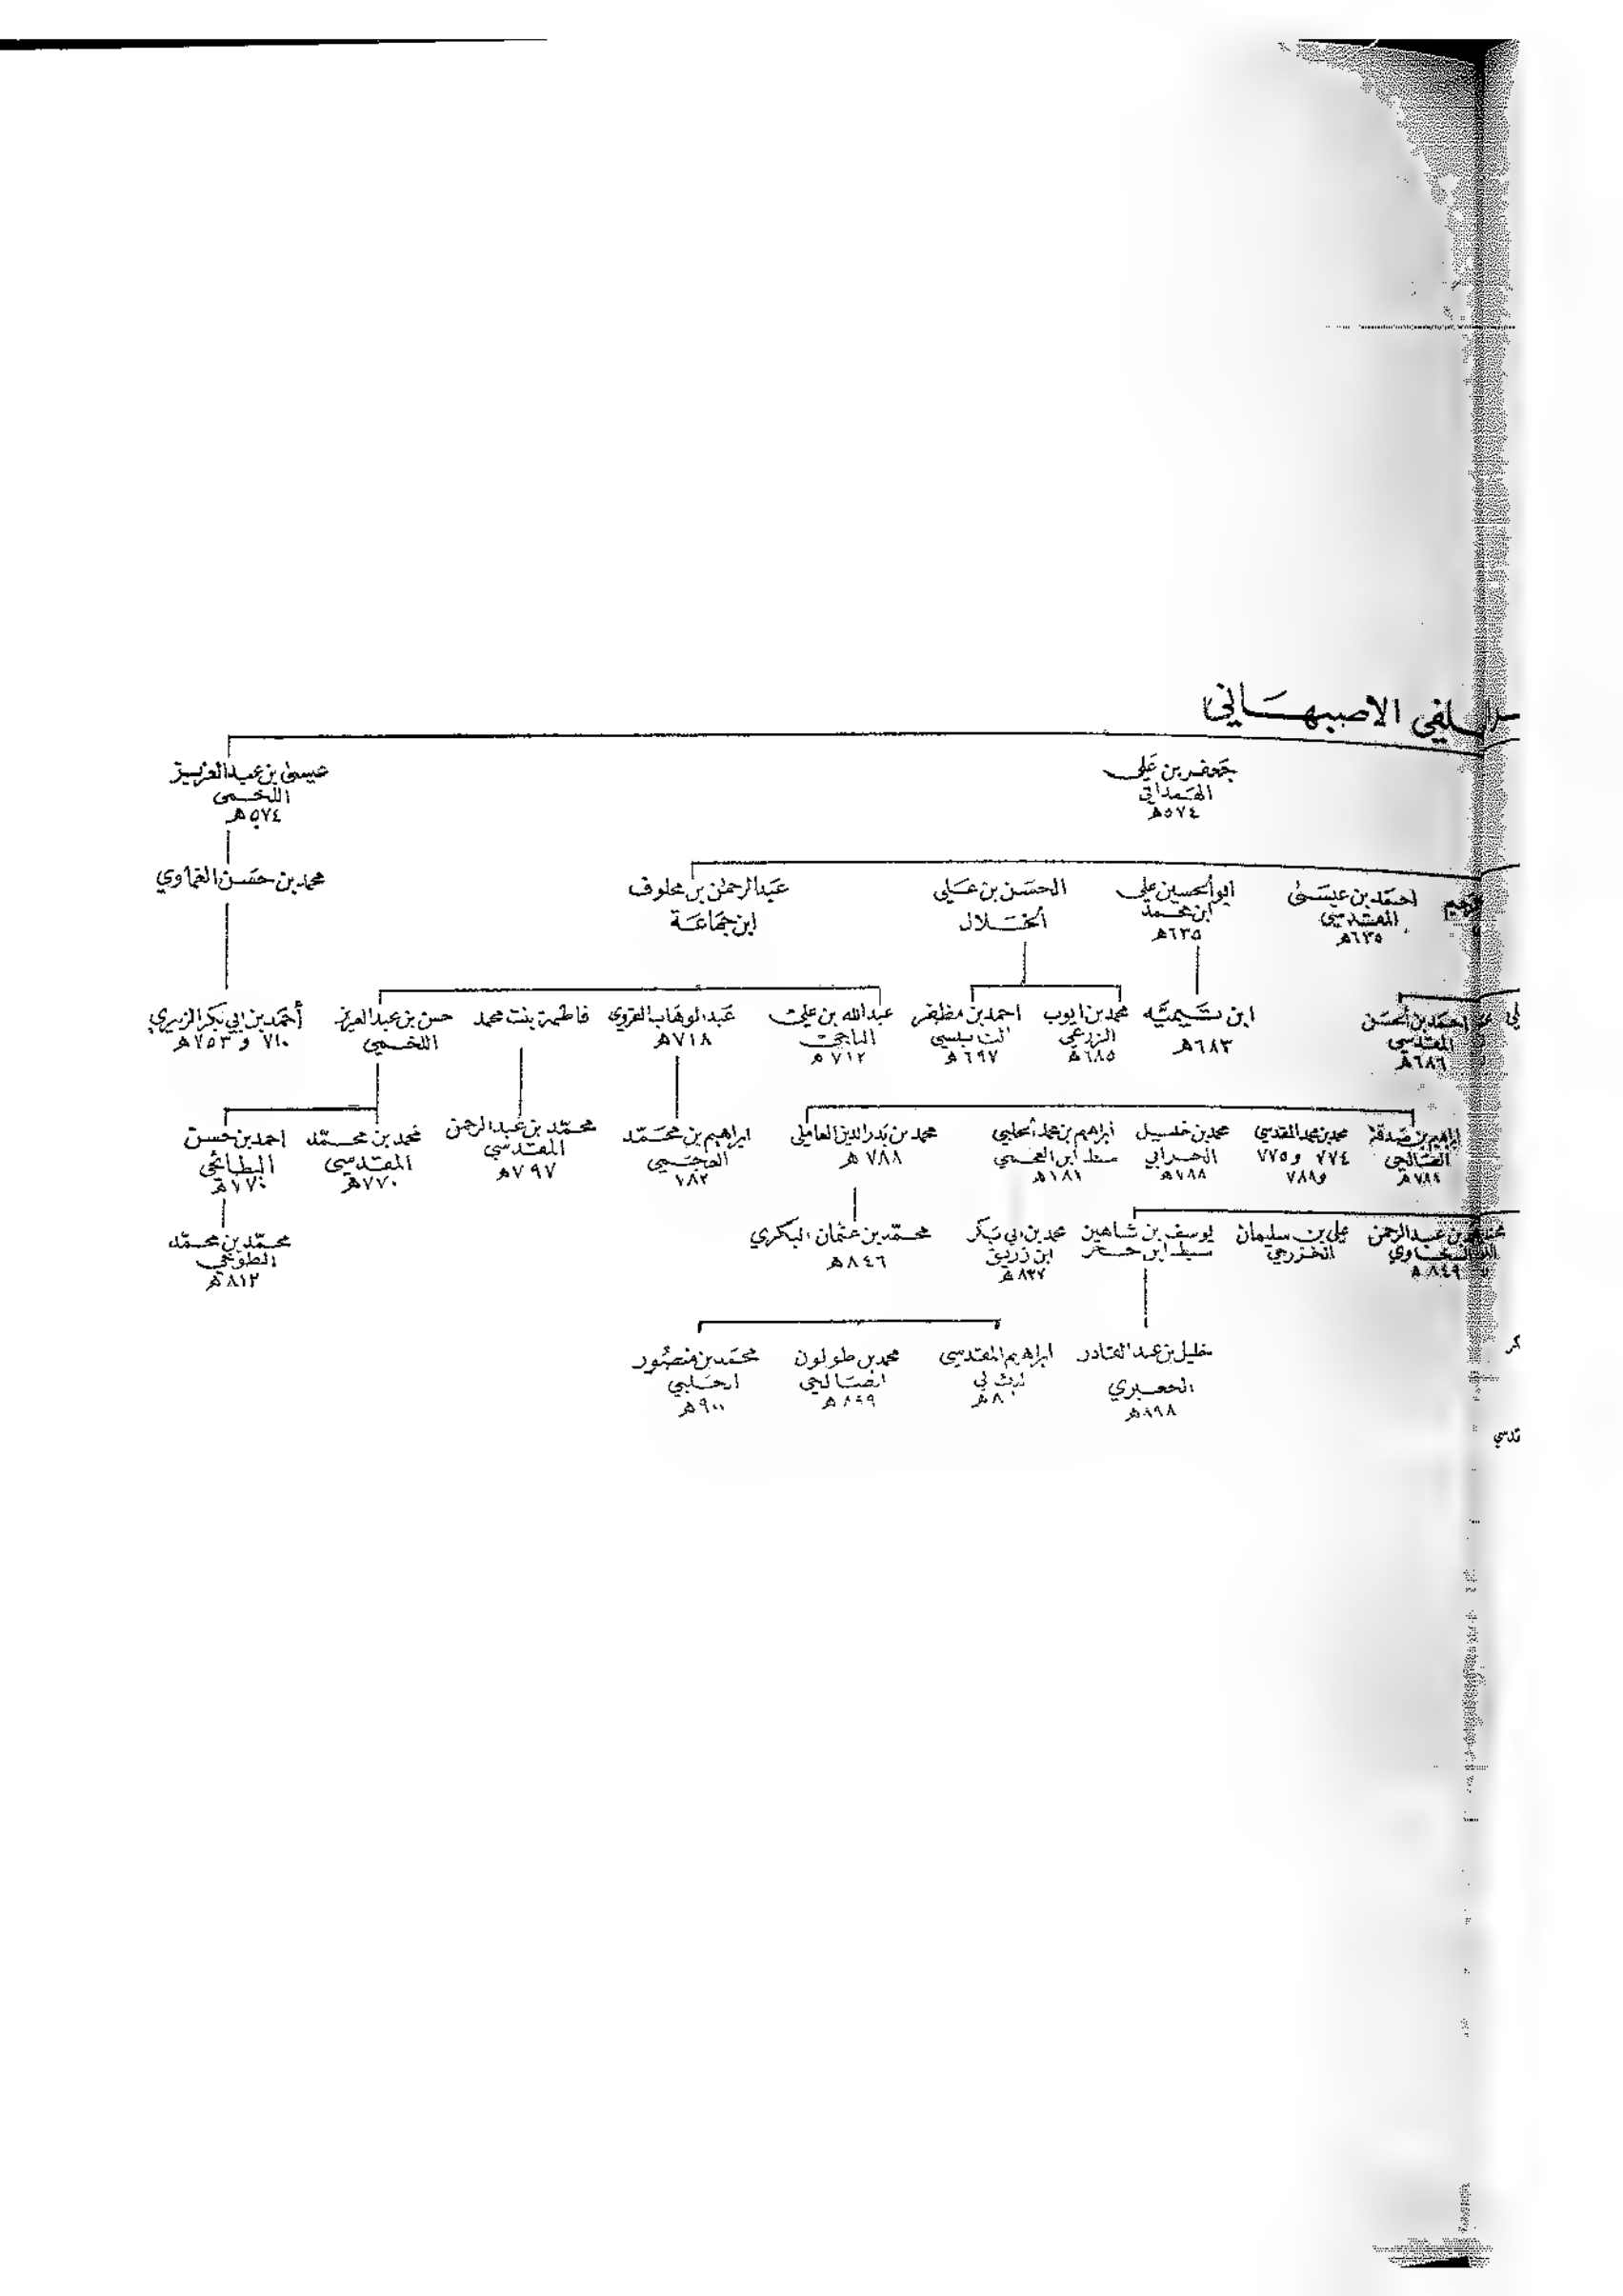 السلفي الاصبهاني
جعفر بن علي
الهمداني
٥٧٤هـ
عيسى بن عبد العزيز
اللخمي
٥٧٤هـ
احمد بن عيسى
المقدسي
٦٣٥هـ
ابو الحسين علي
ابن محمد
٦٣٥هـ
الحسن بن علي
الخلال
عبد الرحمن بن مخلوف
ابن جماعة
محمد بن حسن الغماوي
احمد بن الحسن
المقدسي
٦٨٦هـ
ابن تيمية
٦٨٣هـ
محمد بن ايوب
الزرعي
٦٨٥هـ
احمد بن مظفر
النابلسي
٦٩٧هـ
عبد الله بن علي
٧١٢هـ
عبد الوهاب القروي
٧١٨هـ
فاطمة بنت محمد
حسن بن عبد العزيز
اللخمي
أحمد بن ابي بكر الزبيري
٧١٠ و ٧٥٣هـ
ابراهيم بن صدقة
الصالحي
محمد بن محمد المقدسي
٧٧٤ و ٧٧٥
و٧٨٨
محمد بن خليل
الحراني
٧٨٨هـ
ابراهيم بن محمد الحلبي
سبط ابن العجمي
محمد بن بدر الدين العاملي
٧٨٨ هـ
ابراهيم بن محمد
العجمي
٧٨٢
محمد بن عبد الرحمن
المقدسي
٧٩٧هـ
محمد بن محمد
المقدسي
٧٧٠هـ
احمد بن حسن
البطائحي
٧٧٠هـ
محمد بن عبد الرحمن
السخاوي
٨٤٩هـ
علي بن سليمان
الخزرجي
يوسف بن شاهين
سبط ابن حجر
محمد بن ابي بكر
ابن زريق
٨٣٧هـ
محمد بن عثمان البكري
٨٤٦هـ
محمد بن محمد
الطوخي
٨١٢هـ
خليل بن عبد القادر
الجعبري
٨٩٨هـ
ابراهيم المقدسي
محمد بن طولون
الصالحي
٨٩٩هـ
محمد بن منصور
الحلبي
٩٠٠هـ